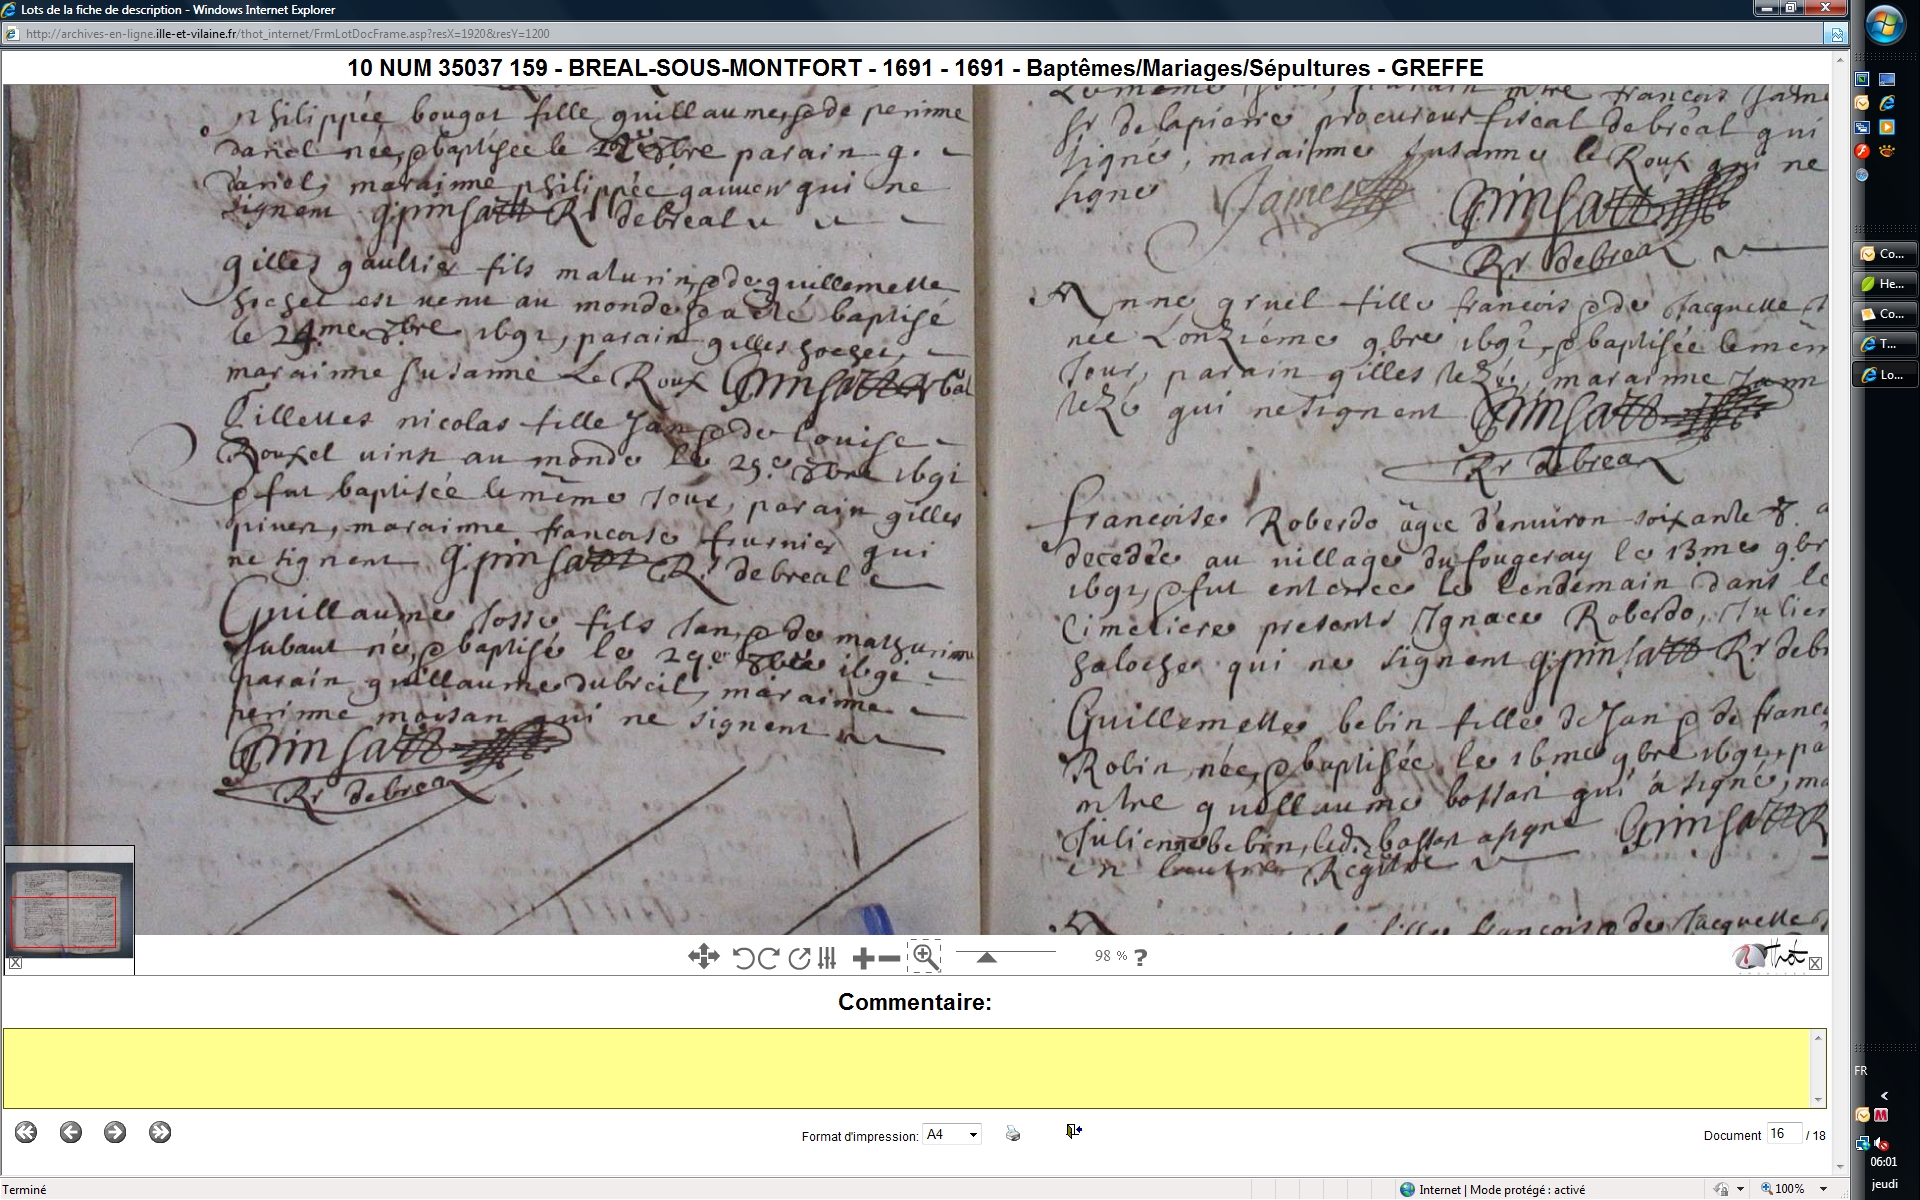 Lots de la fiche de description - Windows Internet Explorer
http://archives-en-ligne.ille-et-vilaine.fr/thot_internet/FrmLotDocFrame.asp?resX=1920&resY=1200
10 NUM 35037 159 - BREAL-SOUS-MONTFORT - 1691 - 1691 - Baptêmes/Mariages/Sépultures - GREFFE
philippée bougot fille guillaume, et de perinne
daniel née, et baptisée le 8bre parain g.
daniel, marainne philippée qui ne
signent g. pinsart Rr debreal
gilles gaultier fils maturin, et de guillemette
hochet est venu au monde et a été baptisé
le 24me 8bre 1691, parain gilles hochet,
marainne susanne Le Roux Gpinsart
Gillettes nicolas fille Jan, et de Louise
Rouxel vint au monde le 25e 8bre 1691
et fut baptisée le même Jour, parain gilles
piver, marainne francoise fournier qui
ne signent g. pinsart Rr debreal
Guillaume Josse fils Jan, et de mathurinne
Jubaut né, et baptisé le 29e 8bre 1691
parain guillaume dubreil, marainne
perinne moisan qui ne signent
Gpinsart
Rr debreal
le même Jour, parain mtre francois Jame
sr delapierre procureur fiscal debreal qui
signe, marainne susanne le Roux qui ne
signe James Gpinsart
Rr debreal
Anne gruel fille francois et de Jacquette
née L'onzième 9bre 1691, et baptisée le mêm
Jour, parain gilles lezé, marainne Jann
lezé qui ne signent Gpinsart
Rr debreal
francoise Roberdo âgée d'environ soixante
decedée au village du fougeray le 13me 9br
1691, et fut enterrée le lendemain dans le
Cimetiere presents Ignace Roberdo, Julien
haloche qui ne signent g. pinsart Rr debr
Guillemette bebin fille de Jan et de franc
Robin née, et baptisée le 16me 9bre 1691, pa
mtre guillaume bossart qui a signé, ma
Julienne bebin, led. bossart a signé Gpinsart R
en l'autre Registre
fille francois et de Jacquette
98 %
?
Thot
Commentaire:
Format d'impression: A4
Document 16 / 18
Terminé
Internet | Mode protégé : activé
100%
Co...
He...
Co...
T...
Lo...
FR
06:01
jeudi